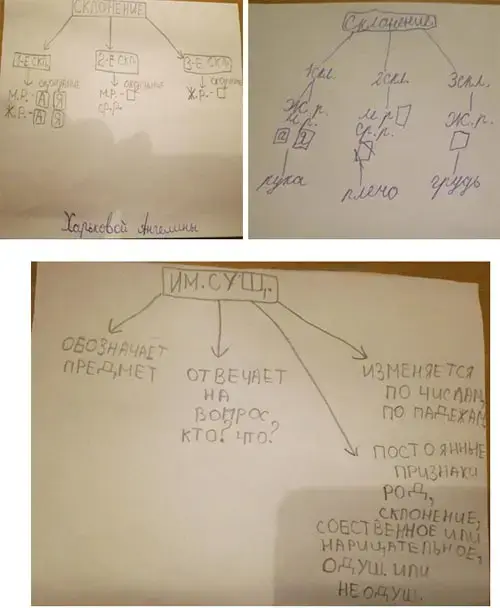 СКЛОНЕНИЕ
1-Е СКЛ. 2-Е СКЛ. 3-Е СКЛ.
окончание окончание окончание
М.Р.- А Я М.Р.- Ж.Р.-
Ж.Р.- А Я СР.Р.-
Харьковой Ангелины
Склонение
1скл. 2скл. 3скл.
Ж.р. м.р Ж.р.
М.р. ср.р.
а я
рука плечо грудь
ИМ. СУЩ.
ОБОЗНАЧАЕТ
ПРЕДМЕТ
ОТВЕЧАЕТ
НА
ВОПРОС
КТО? ЧТО?
ИЗМЕНЯЕТСЯ
ПО ЧИСЛАМ,
ПО ПАДЕЖАМ
ПОСТОЯННЫЕ
ПРИЗНАКИ
РОД,
СКЛОНЕНИЕ,
СОБСТВЕННОЕ ИЛИ
НАРИЦАТЕЛЬНОЕ,
ОДУШ. ИЛИ
НЕОДУШ.